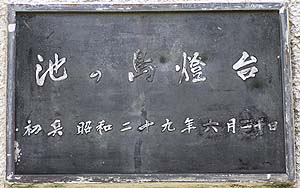 池の島燈台
初点 昭和二十九年六月二十日